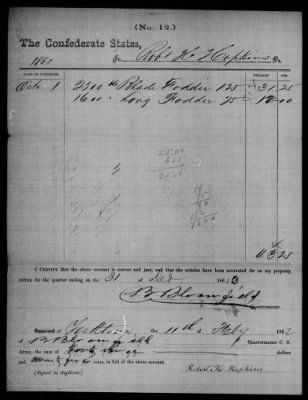 (No. 12.)
The Confederate States,
To Robt. H. Hopkins Dr.
1861
DATE OF PURCHASE. DOLLARS CTS.
Octo 1 2500 lbs Blade Fodder 125 31.25
1600 " Long Fodder 75 12.00
25.00
6.25
31.25
43.25
I CERTIFY that the above account is correct and just, and that the articles have been accounted for on my property
return for the quarter ending on the 31 of Dec 186
B Bloomfield
Received at Yorktown the 11th of Feby 1862
of B Bloomfield Quartermaster C. S.
Army, the sum of forty three dollars
and twenty five cents, in full of the above account.
(Signed in duplicate.) Robert H. Hopkins